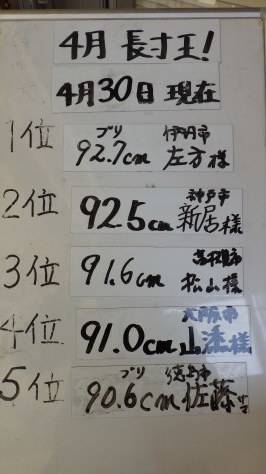 4月 長寸王!
4月30日 現在
1位 ブリ 92.7cm 伊丹市 左方様
2位 92.5cm 神戸市 新居様
3位 91.6cm 松山様
4位 91.0cm 大阪市 山添様
5位 ブリ 90.6cm 徳島市 佐藤サマ